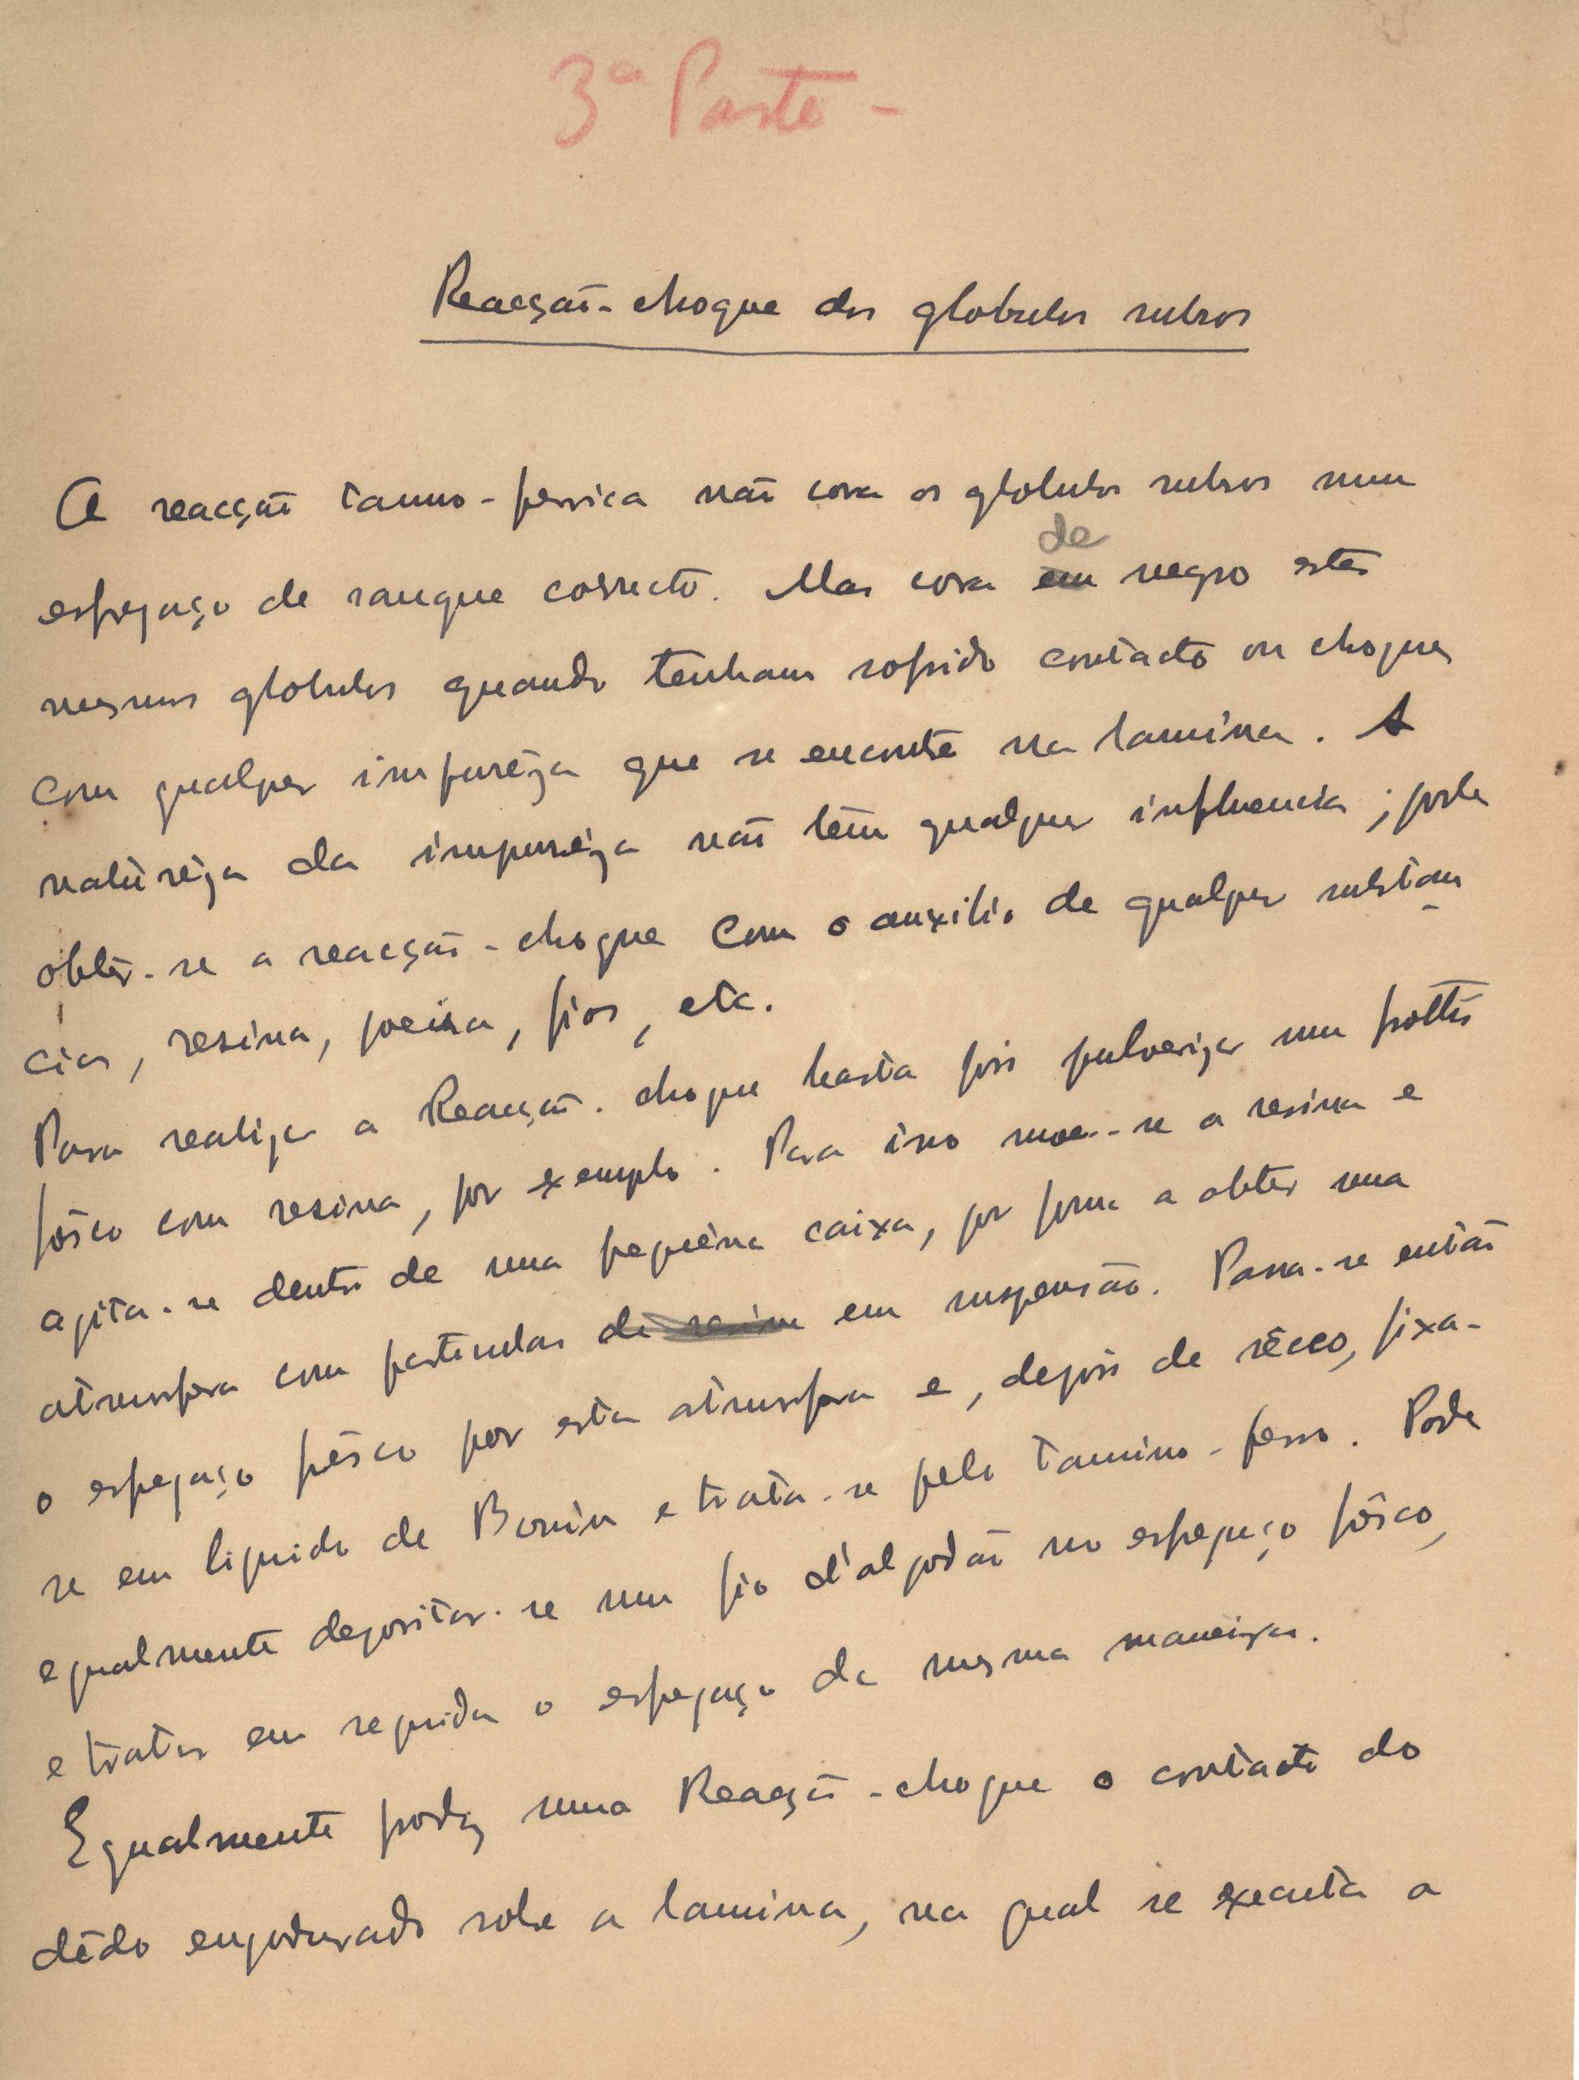 3ª Parte -
Reacção-choque dos globulos rubros
A reacção tanno-ferrica não cora os globulos rubros num
de
esfregaço de sangue correcto. Mas cora em negro estes
mesmos globulos quando tenham sofrido contacto ou choques
com qualquer impurêza que se encontre na lamina. A
naturêza da impurêza não têm qualquer influencia; pode
obter-se a reacção-choque com o auxilio de qualquer substan
cias, resina, poeira, fios, etc.
Para realizar a Reacção-choque basta pois pulverizar um frottis
fêsco com resina, por exemplo. Para isso moe-se a resina e
agita-se dentro de uma pequêna caixa, por forma a obter uma
atmosfera com particulas de resina em suspensão. Passa-se então
o esfregaço fêsco por esta atmosfera e, depois de sêcco, fixa-
se em liquido de Bouin e trata-se pelo tannino-ferro. Pode
egualmente depositar-se um fio d'algodão no esfregaço fêsco,
e tratar em seguida o esfregaço da mesma maneira.
Egualmente produz uma Reacção-choque o contacto do
dêdo engordurado sobre a lamina, na qual se executa o